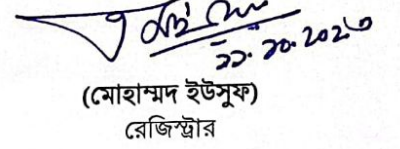 ২২.১০.২০২৩
(মোহাম্মদ ইউসুফ)
রেজিস্ট্রার